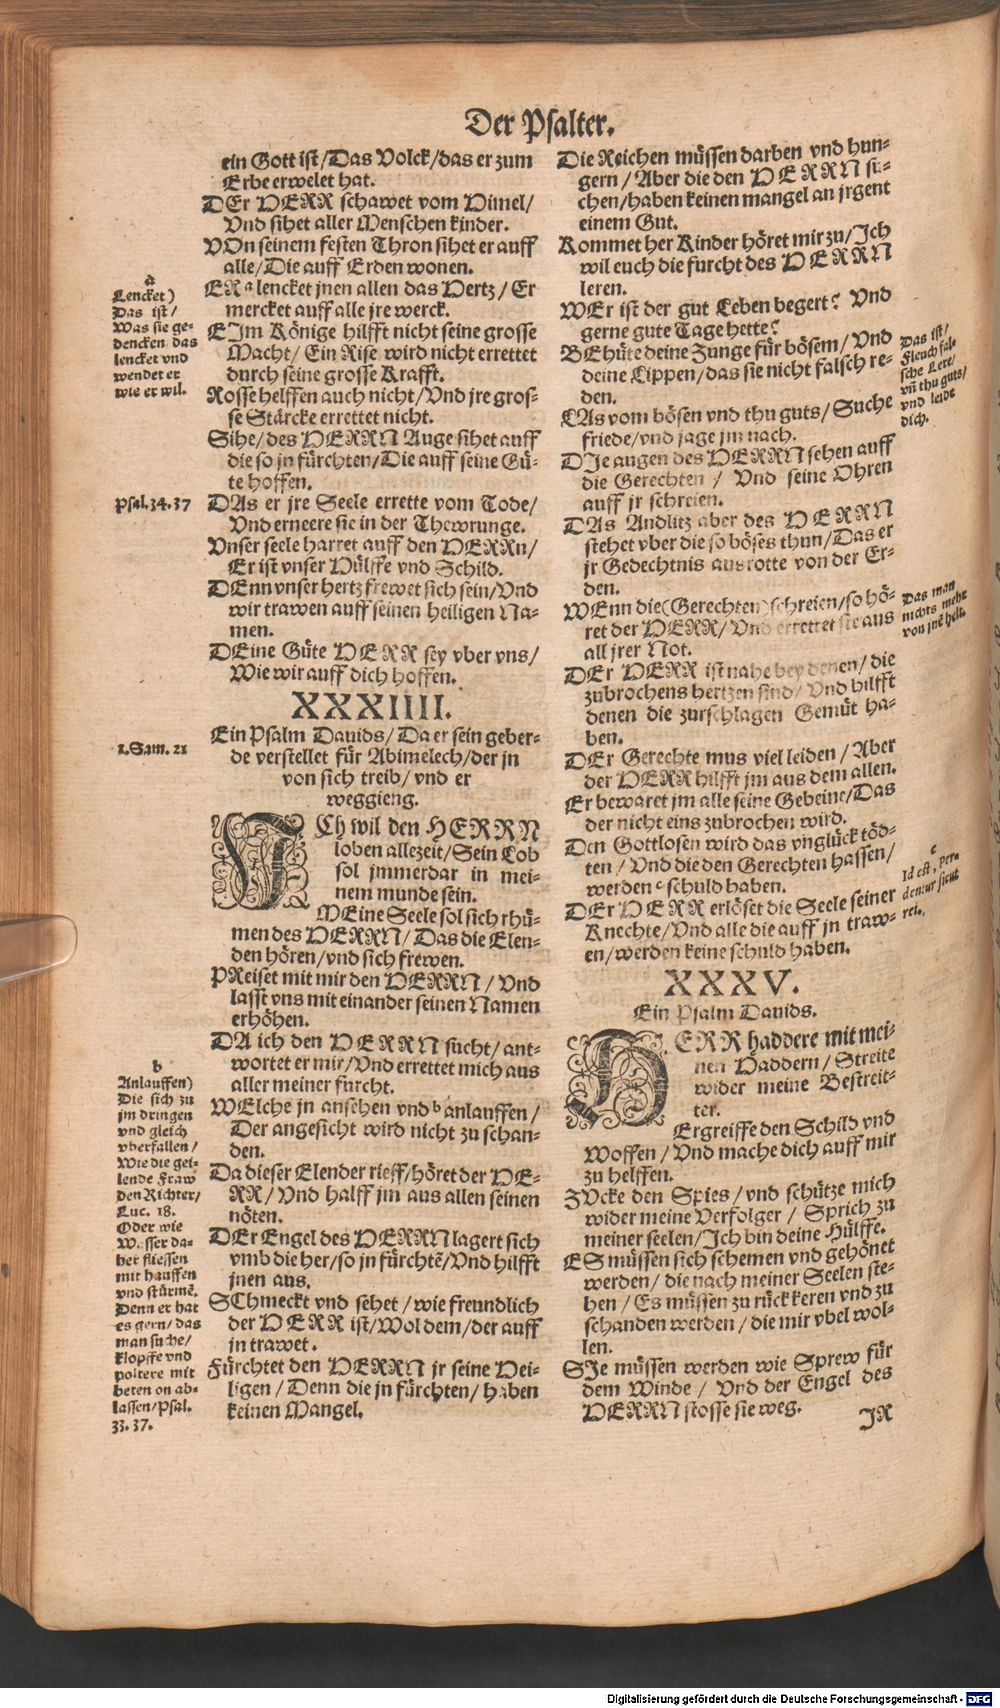 Der Psalter.
ein Gott ist / Das Volck / das er zum
Erbe erwelet hat.
DEr HERR schawet vom Himel /
Vnd sihet aller Menschen kinder.
VOn seinem festen Thron sihet er auff
alle / Die auff Erden wonen.
ER a lencket jnen allen das Hertz / Er
mercket auff alle jre werck.
EJm Könige hilfft nicht seine grosse
Macht / Ein Rise wird nicht errettet
durch seine grosse Krafft.
Rosse helffen auch nicht / Vnd jre gros-
se Stärcke errettet nicht.
Sihe / des HERRN Auge sihet auff
die so jn fürchten / Die auff seine Gü-
te hoffen.
DAs er jre Seele errette vom Tode /
Vnd erneere sie in der Thewrunge.
Vnser seele harret auff den HERRn /
Er ist vnser Hülffe vnd Schild.
DEnn vnser hertz frewet sich sein / Vnd
wir trawen auff seinen heiligen Na-
men.
DEine Güte HERR sey vber vns /
Wie wir auff dich hoffen.
XXXIIII.
Ein Psalm Dauids / Da er sein geber-
de verstellet für Abimelech / der jn
von sich treib / vnd er
weggieng.
JCh wil den HERRN
loben allezeit / Sein Lob
sol jmmerdar in mei-
nem munde sein.
MEine Seele sol sich rhü-
men des HERRN / Das die Elen-
den hören / vnd sich frewen.
PReiset mit mir den HERRN / Vnd
lasst vns mit einander seinen Namen
erhöhen.
DA ich den HERRN sucht / ant-
wortet er mir / Vnd errettet mich aus
aller meiner furcht.
WElche jn ansehen vnd b anlauffen /
Der angesicht wird nicht zu schan-
den.
Da dieser Elender rieff / höret der HE-
RR / Vnd halff jm aus allen seinen
nöten.
DEr Engel des HERRN lagert sich
vmb die her / so jn fürchtẽ / Vnd hilfft
jnen aus.
SChmeckt vnd sehet / wie freundlich
der HERR ist / Wol dem / der auff
jn trawet.
Fürchtet den HERRN jr seine Hei-
ligen / Denn die jn fürchten / haben
keinen Mangel.
a
Lencket)
Das ist /
Was sie ge-
dencken / das
lencket vnd
wendet er
wie er wil.
Psal. 34. 37
1. Sam. 21
b
Anlauffen)
Die sich zu
jm dringen
vnd gleich
vberfallen /
Wie die gei-
lende Fraw
den Richter /
Luc. 18.
Oder wie
Wasser da-
her fliessen
mit hauffen
vnd stürmẽ.
Denn er hat
es gern / das
man suche /
klopffe vnd
poltere mit
beten on ab-
lassen / Psal.
33. 37.
Die Reichen müssen darben vnd hun-
gern / Aber die den HERRN su-
chen / haben keinen mangel an jrgent
einem Gut.
Kommet her Kinder höret mir zu / Ich
wil euch die furcht des HERRN
leren.
WEr ist der gut Leben begert? Vnd
gerne gute Tage hette?
BEhüte deine Zunge für bösem / Vnd
deine Lippen / das sie nicht falsch re-
den.
LAs vom bösen vnd thu guts / Suche
friede / vnd jage jm nach.
DJe augen des HERRN sehen auff
die Gerechten / Vnd seine Ohren
auff jr schreien.
DAs Andlitz aber des HERRN
stehet vber die so böses thun / Das er
jr Gedechtnis ausrotte von der Er-
den.
WEnn die (Gerechten) schreien / so hö-
ret der HERR / Vnd errettet sie aus
all jrer Not.
DEr HERR ist nahe bey denen / die
zubrochens hertzen sind / Vnd hilfft
denen die zurschlagen Gemüt ha-
ben.
DEr Gerechte mus viel leiden / Aber
der HERR hilfft jm aus dem allen.
Er bewaret jm alle seine Gebeine / Das
der nicht eins zubrochen wird.
Den Gottlosen wird das vnglück töd-
ten / Vnd die den Gerechten hassen /
werden c schuld haben.
DEr HERR erlöset die Seele seiner
Knechte / Vnd alle die auff jn traw-
en / werden keine schuld haben.
XXXV.
Ein Psalm Dauids.
HERR haddere mit mei-
nen Haddern / Streite
wider meine Bestreit-
ter.
Ergreiffe den Schild vnd
Woffen / Vnd mache dich auff mir
zu helffen.
ZVcke den Spies / vnd schütze mich
wider meine Verfolger / Sprich zu
meiner seelen / Ich bin deine Hülffe.
ES müssen sich schemen vnd gehönet
werden / die nach meiner Seelen ste-
hen / Es müssen zu rück keren vnd zu
schanden werden / die mir vbel wol-
len.
SJe müssen werden wie Sprew für
dem Winde / Vnd der Engel des
HERRN stosse sie weg.
JR
Das ist /
Fleuch fal-
sche Lere /
vñ thu guts /
vnd leide
dich.
Das man
nichts mehr
von jnẽ helt.
c
Id est, per-
dentur sicut
rei.
Digitalisierung gefördert durch die Deutsche Forschungsgemeinschaft - DFG